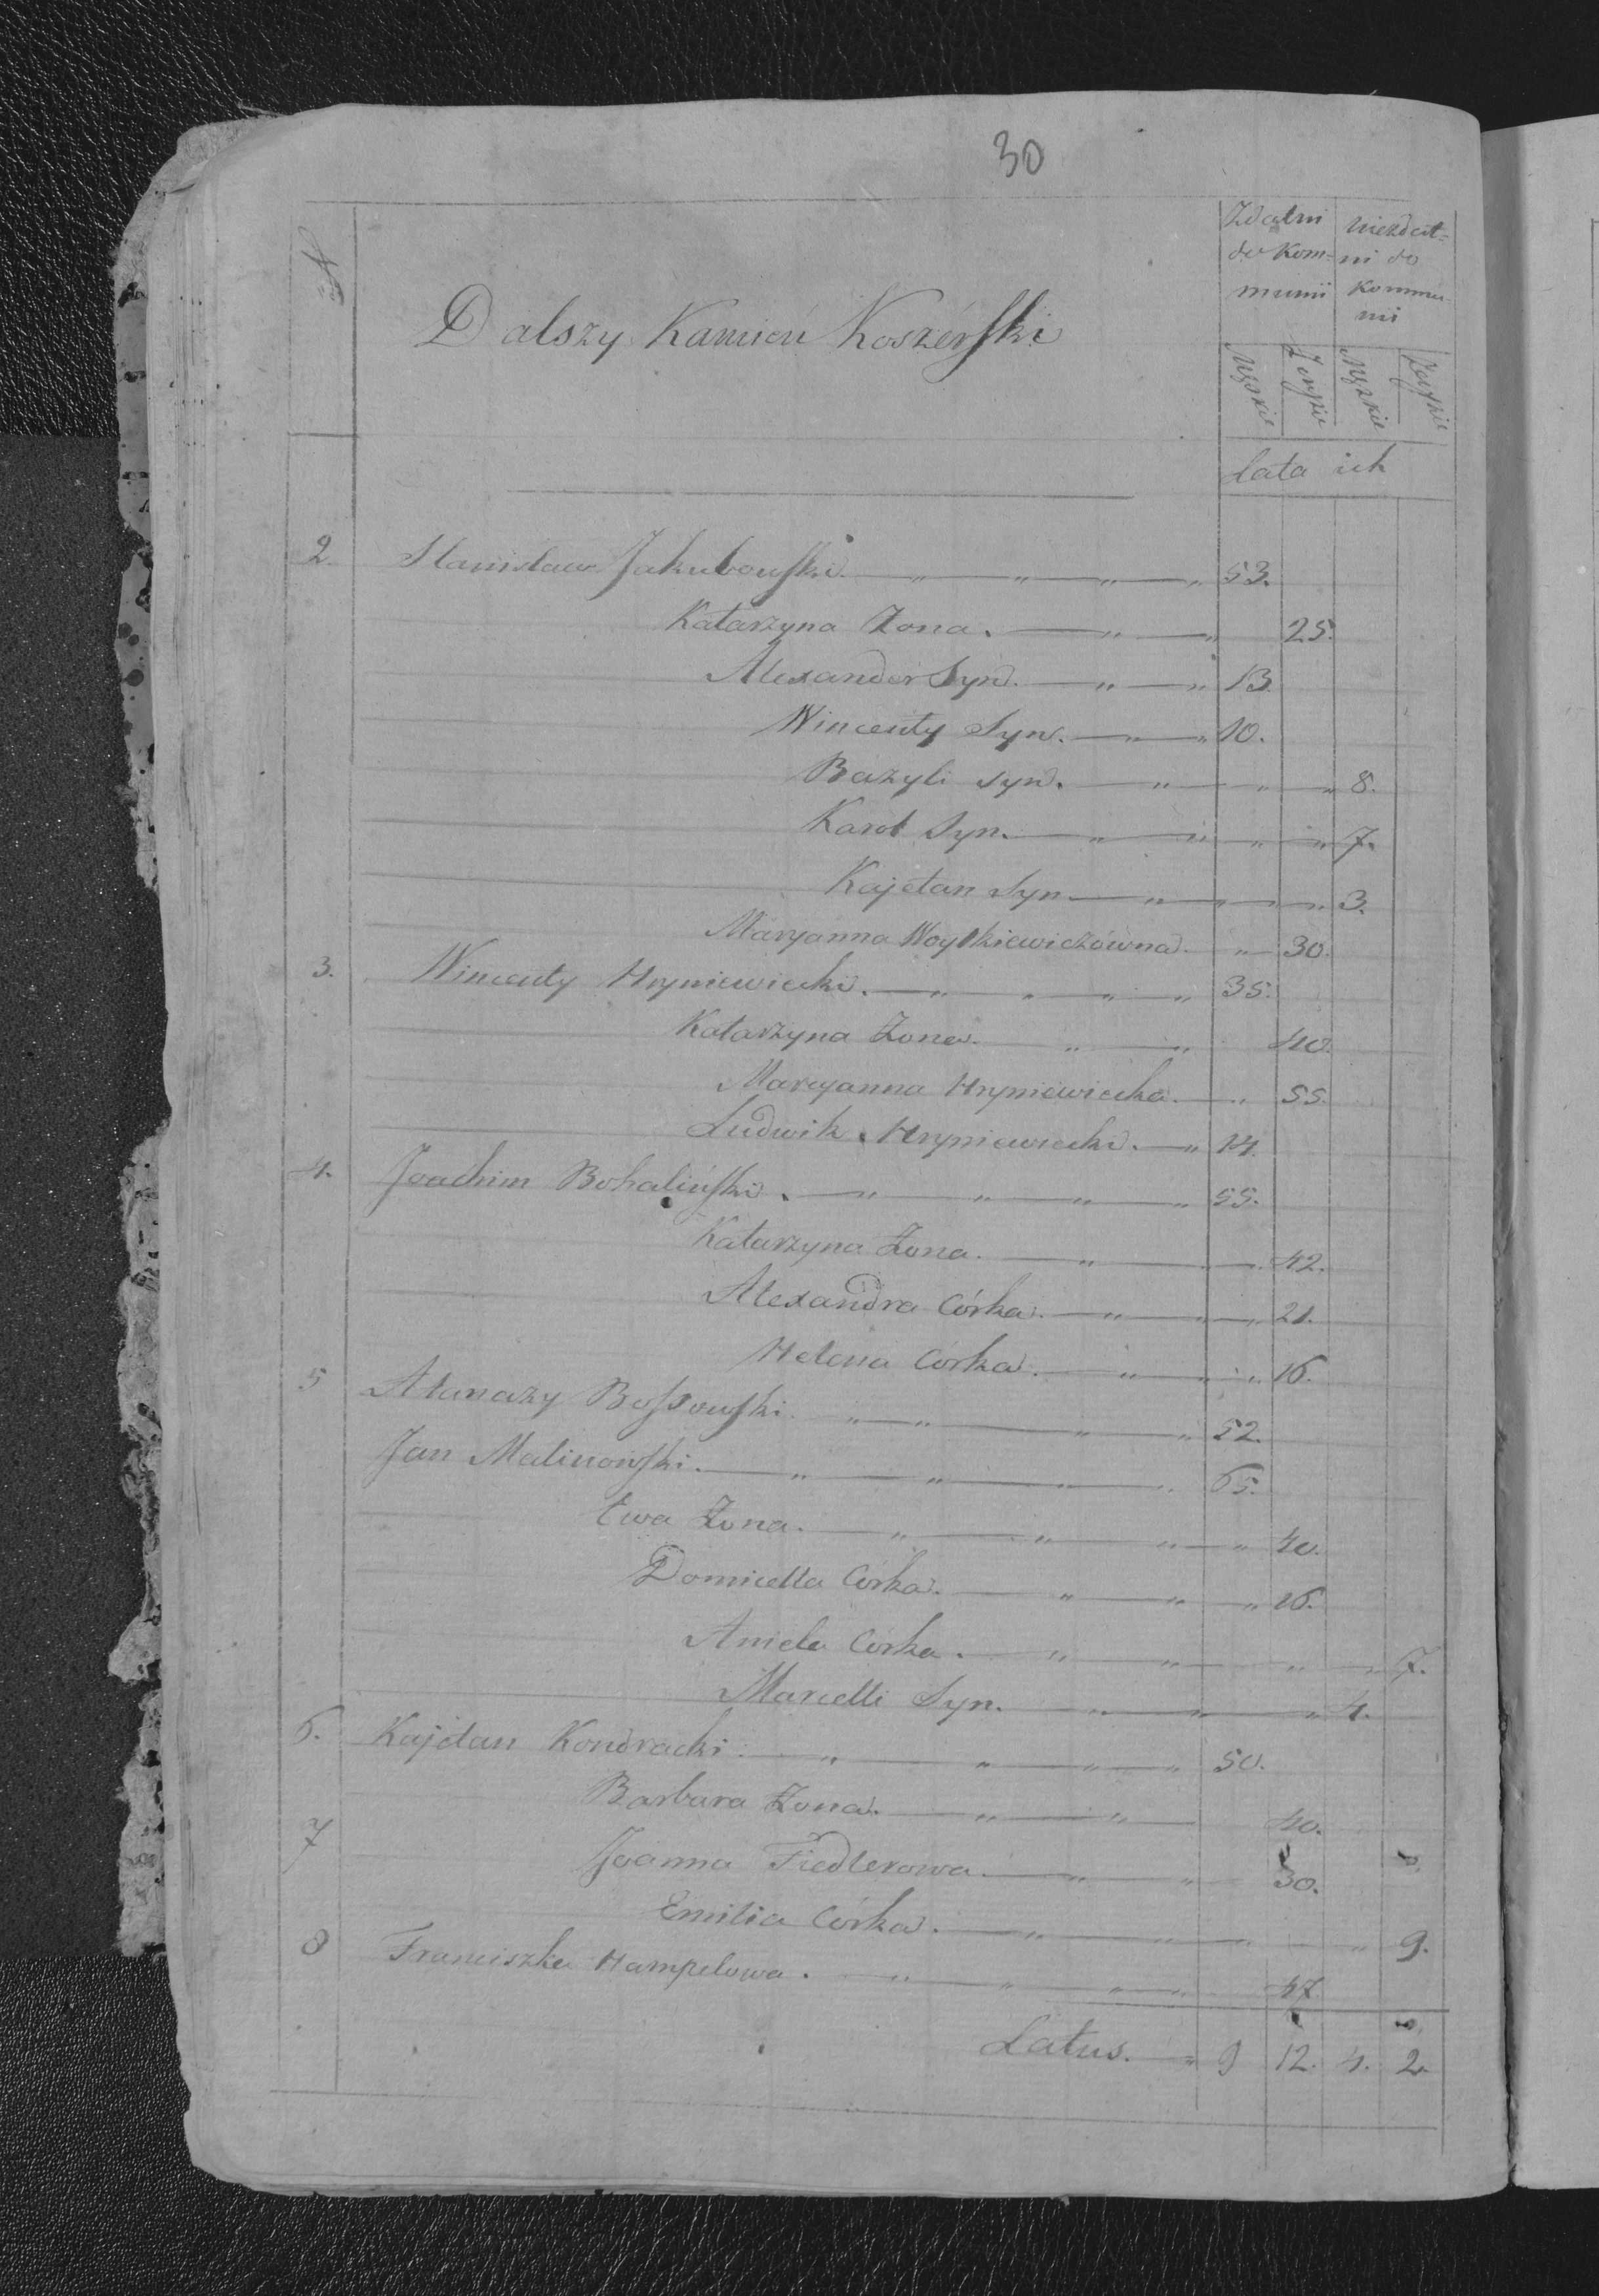 30
Nro
Zdatni do Kom=munii
niezdat=ni do Kommunii
Dalszy Kamień Koszérski
Męzkie Żeńskie Męzkie Żeńskie
lata ich
2. Stanisław Jakubowski. 53.
Katarzyna Żona. 25.
Alexander Syn. 13
Wincenty Syn. 10.
Bazyli syn. 8.
Karol Syn. 7.
Kajetan Syn 3.
Maryanna Woytkiewiczówna. 30.
3. Wincenty Hryniewiecki. 35.
Katarzyna Żona. 40.
Maryanna Hryniewiecka. 55.
Ludwik Hryniewiecki. 14.
4. Joachim Bohaliński. 55.
Katarzyna Żona. 42.
Alexandra Córka. 21.
Helena Córka. 16.
5 Atanazy 52.
Jan Malinowski. 65.
Ewa Żona. 40.
Domicella Córka. 16.
Aniela Córka. 7.
Marcelli Syn. 4.
6. Kajetan Kondracki 50.
Barbara Żona. 40.
7 Joanna Fiedlerowa. 30.
Emilia Córka. 9.
8 Franciszka Hampelowa. 47.
Latus. 9 12. 4. 2.